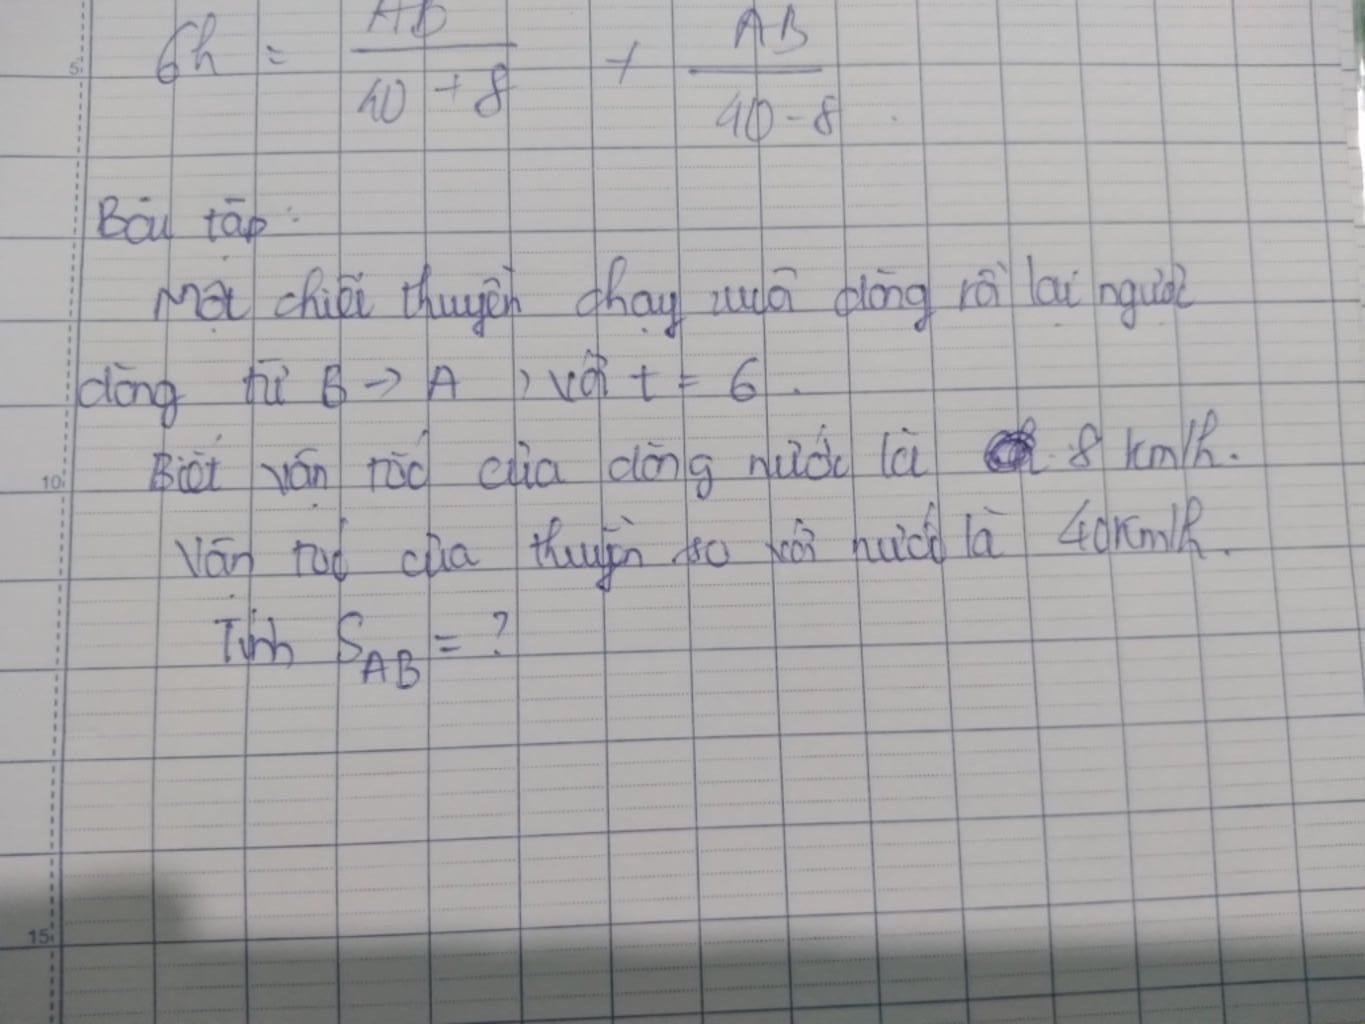 5
6h = AB/(40 + 8) + AB/(40 - 8)
Bài tập:
Một chiếc thuyền chạy xuô dòng rồi lại ngược
dòng từ B → A , với t = 6.
Biết vận tốc của dòng nước là 8 km/h.
10
Vận tốc của thuyền so với nước là 40km/h.
Tính S_AB = ?
15